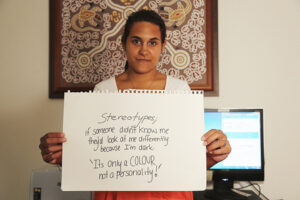 Stereotypes,
if someone didn't know me
they'd look at me differently
because I'm dark.
"It's only a COLOUR
not a personality!"